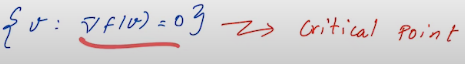 { v : ∇f(v) = 0 } → Critical Point